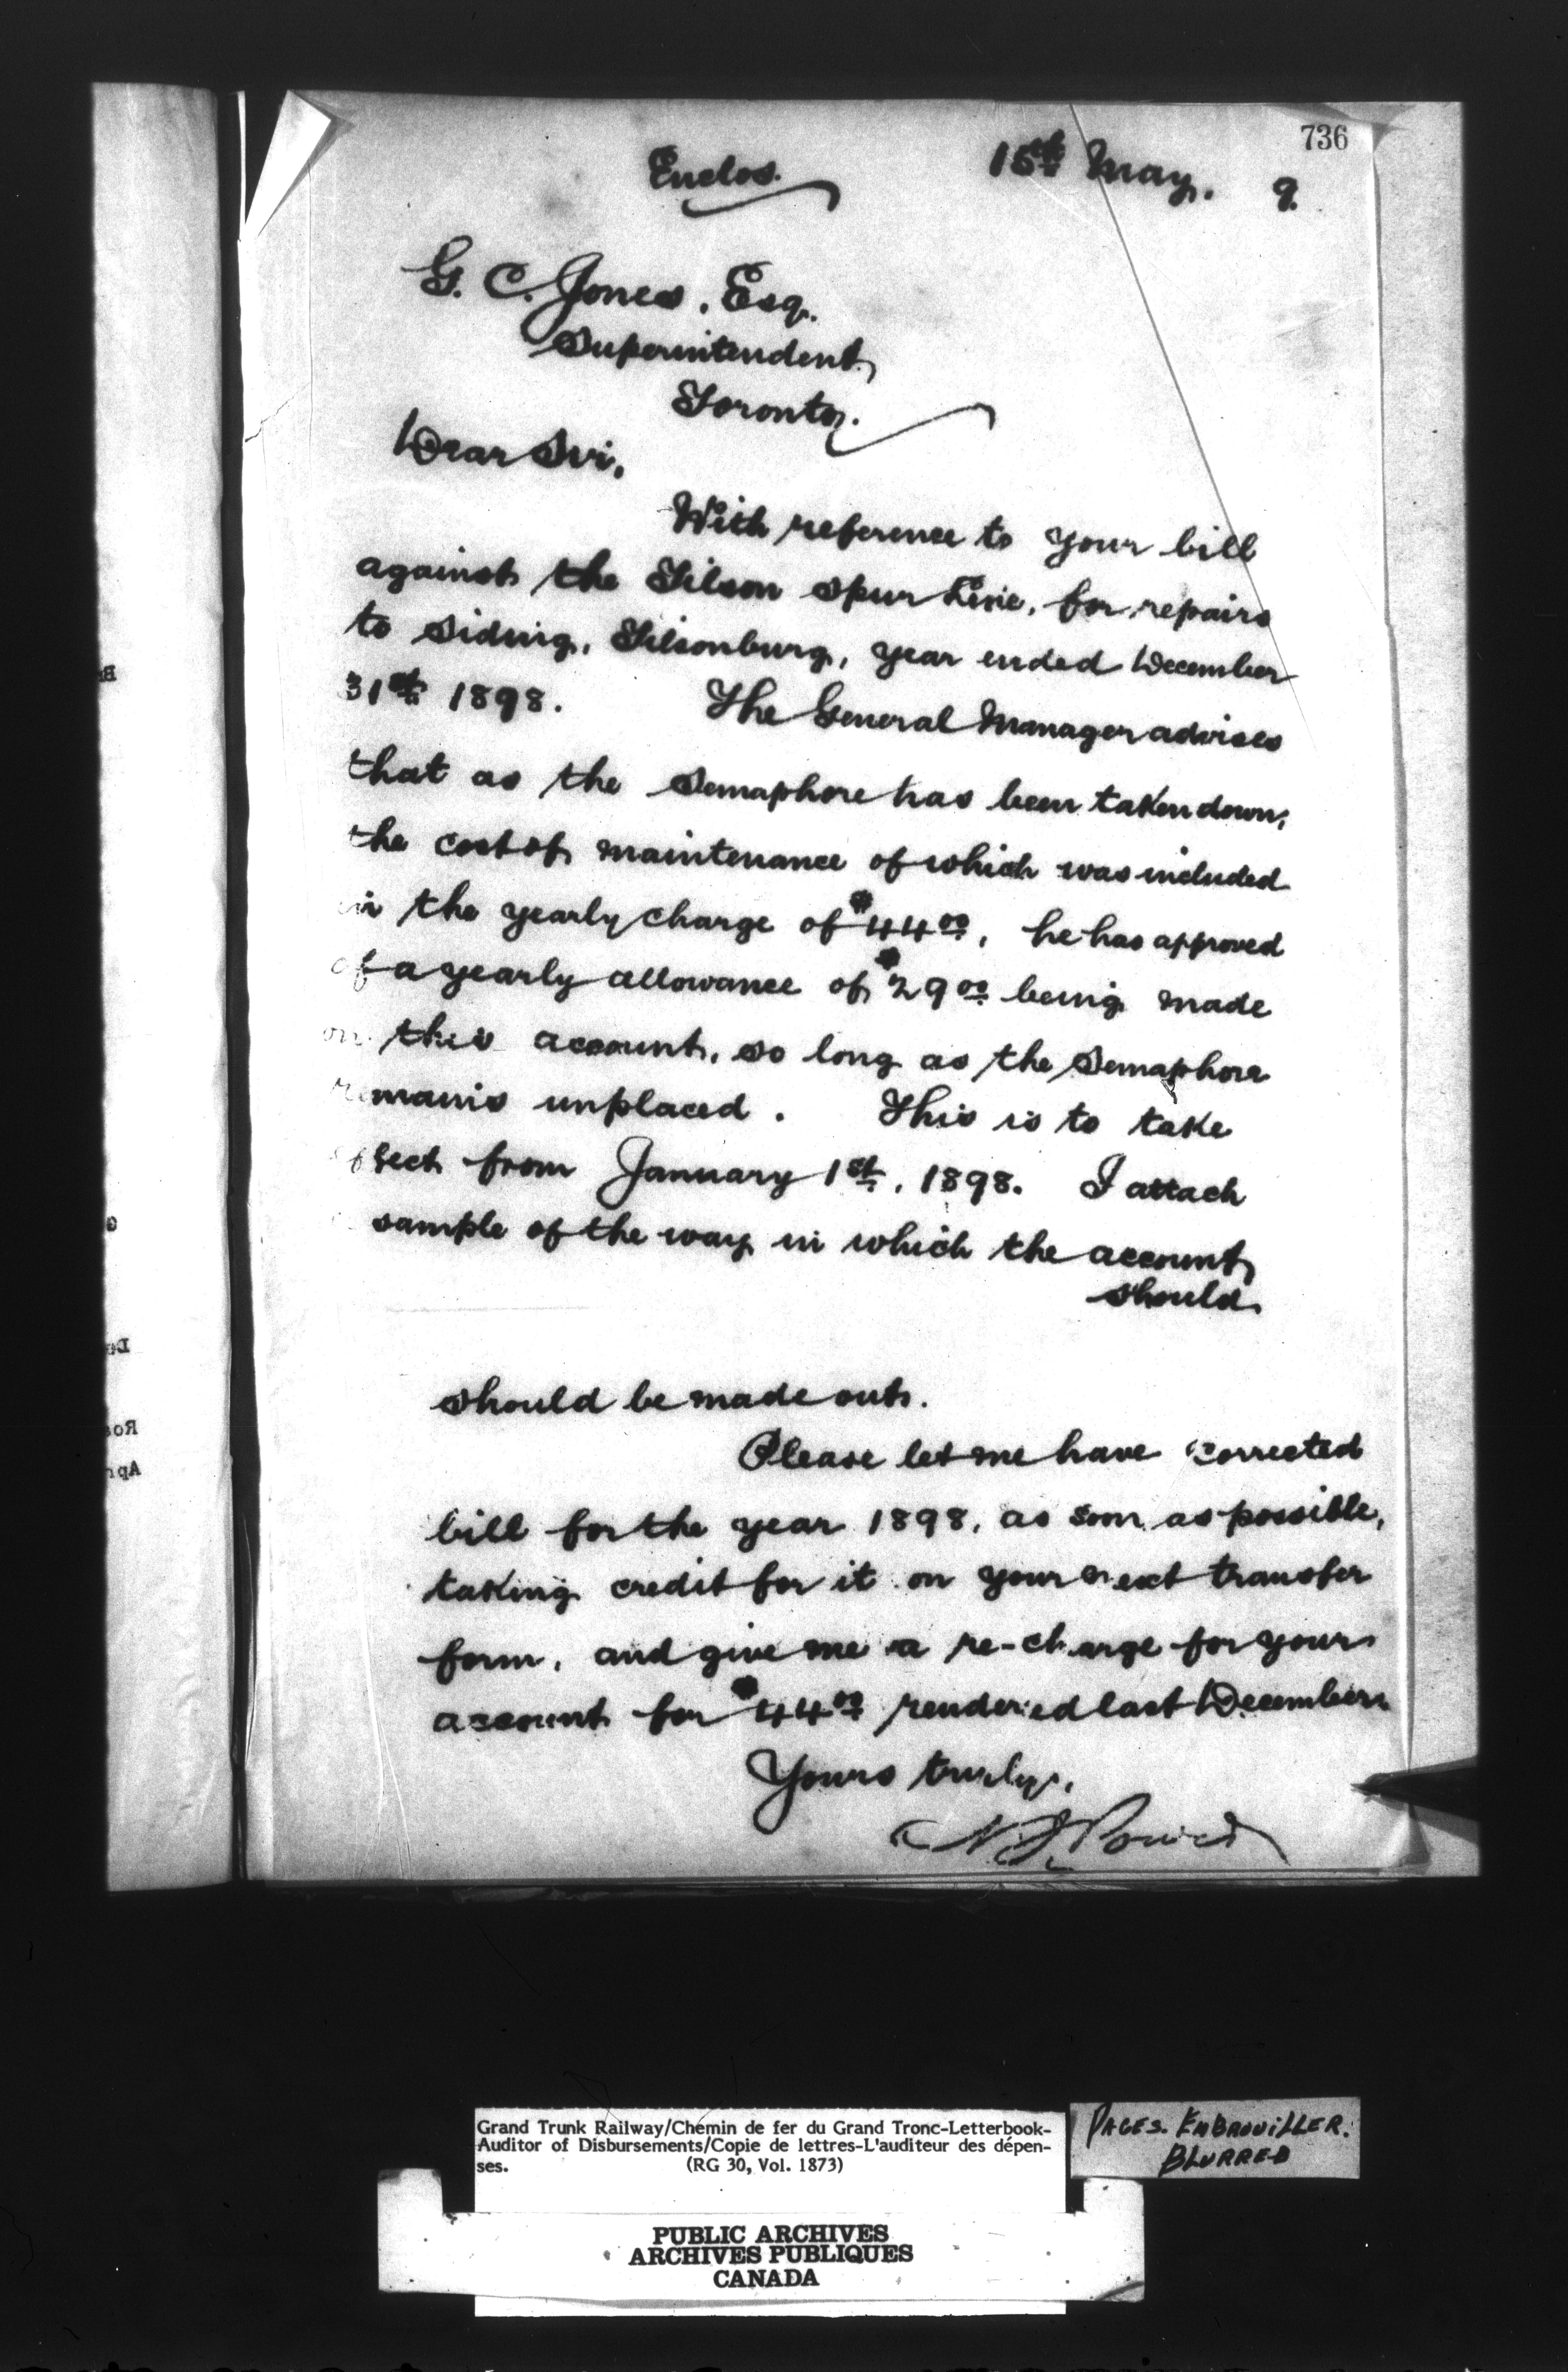 736
Enclos. 15th May. 9.
G. C. Jones, Esq.
Superintendent,
Toronto.
Dear Sir,
With reference to your bill
against the Tilson Spur Line, for repairs
to siding, Tilsonburg, year ended December
31st 1898. The General Manager advises
that as the Semaphore has been taken down,
the cost of maintenance of which was included
in the yearly charge of $44.00, he has approved
of a yearly allowance of $29.00 being made
on this account, so long as the Semaphore
remains unplaced. This is to take
effect from January 1st, 1898. I attach
sample of the way in which the account
should
should be made out.
Please let me have corrected
bill for the year 1898, as soon as possible,
taking credit for it on your next transfer
form, and give me a re-charge for your
account for $44.00 rendered last December.
Yours truly,
Grand Trunk Railway/Chemin de fer du Grand Tronc-Letterbook-
Auditor of Disbursements/Copie de lettres-L'auditeur des dépen-
ses. (RG 30, Vol. 1873)
PAGES. EMBROUILLER.
BLURRED
PUBLIC ARCHIVES
ARCHIVES PUBLIQUES
CANADA